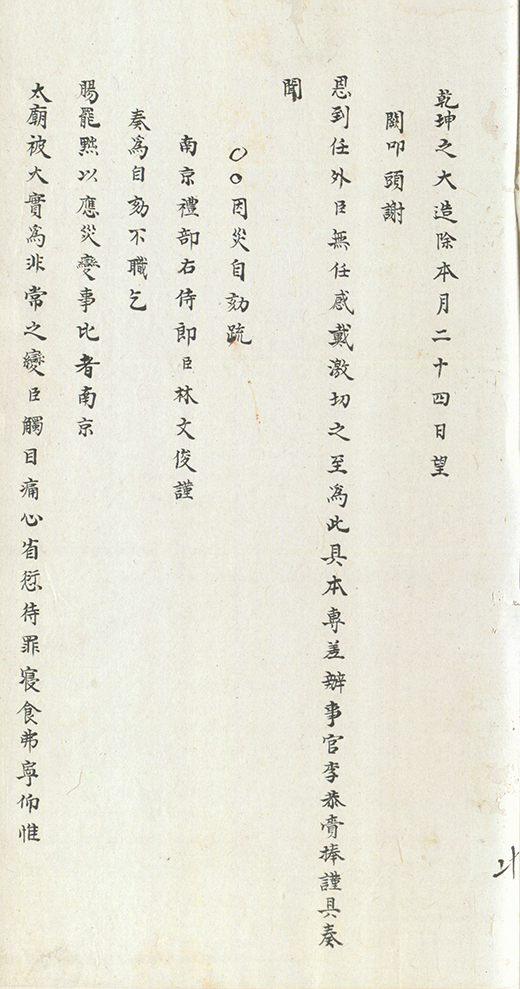 乾坤之大造除本月二十四日望
闕叩頭謝
恩到任外臣無任感戴激切之至爲此具本專差辦事官李恭賫捧謹具奏
聞
〇〇因災自劾疏
南京禮部右侍郎臣林文俊謹
奏爲自劾不職乞
賜罷黜以應災變事比者南京
太廟被火實爲非常之變臣觸目痛心省愆待罪寢食弗寧仰惟